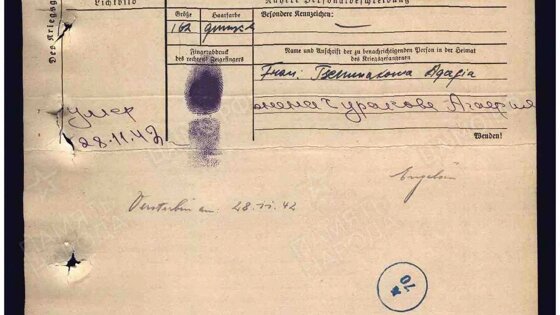 Lichtbild
Nähere Personalbeschreibung
Des Kriegsge
Größe
Haarfarbe
Besondere Kennzeichen:
162
—
Fingerabdruck
des rechten Zeigefingers
Name und Anschrift der zu benachrichtigenden Person in der Heimat
des Kriegsgefangenen
Frau: Tschurakowa Agafia
умер
28.11.42
жена Чуракова Агафия
Wenden!
Verstorben am: 28.11.42
70